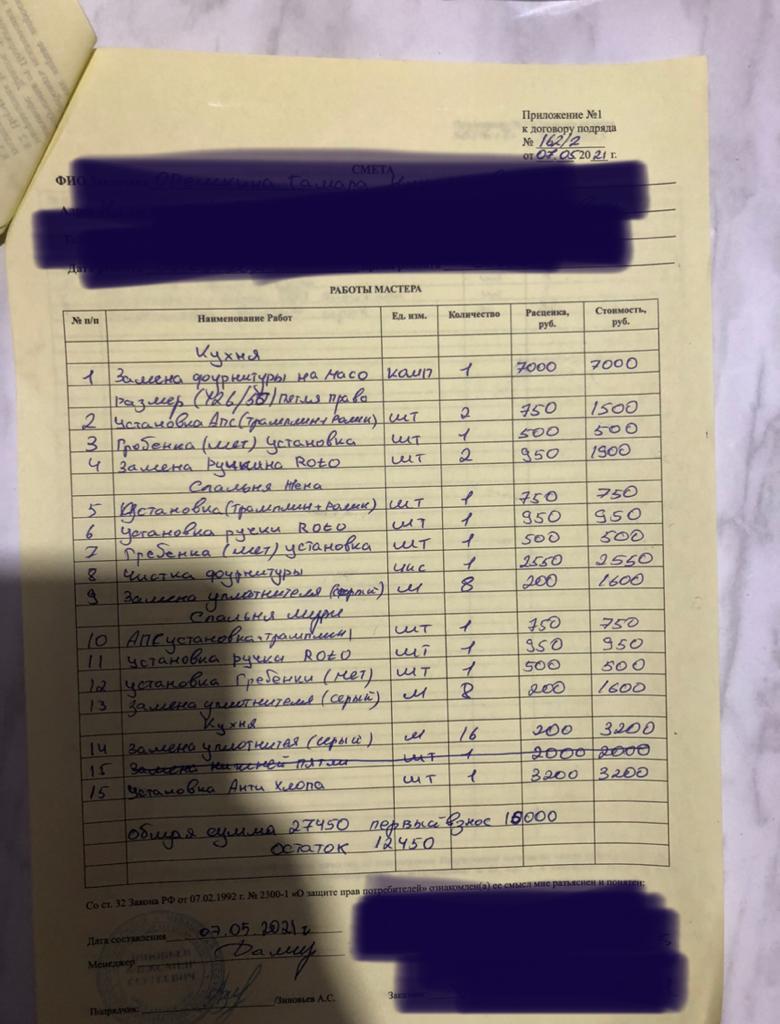 Приложение №1
к договору подряда
№ 162/2
от 07.05 2021 г.
СМЕТА
ФИО
РАБОТЫ МАСТЕРА
№ п/п Наименование Работ Ед. изм. Количество Расценка, руб. Стоимость, руб.
Кухня
1 Замена фурнитуры на масо компл 1 7000 7000
размер петля право
2 Установка Апс (трамплин+ролик) шт 2 750 1500
3 Гребенка (мет) установка шт 1 500 500
4 Замена Roto шт 2 950 1900
Спальня Жена
5 Установка (трамплин+ролик) шт 1 750 750
6 Установка ручки Roto шт 1 950 950
7 Гребенка (мет) установка шт 1 500 500
8 Чистка фоурнитуры 1 2550 2550
9 Замена уплотнителя (серый) м 8 200 1600
Спальня
10 АПС установка трамплин шт 1 750 750
11 Установка ручки Roto шт 1 950 950
12 Установка Гребенки (мет) шт 1 500 500
13 Замена уплотнителя (серый) м 8 200 1600
Кухня
14 Замена (серый) м 16 200 3200
15 Замена нижней пятли шт 1 2000 2000
15 Установка Анти Хлопа шт 1 3200 3200
Общая сумма 27450 первый взнос 15000
остаток 12450
Со ст. 32 Закона РФ от 07.02.1992 г. № 2300-1 «О защите прав потребителей» ознакомлен(а) ее смысл мне разъяснен и понятен:
Дата составления 07.05.2021
Менеджер
Подрядчик: /Зиновьев А.С.